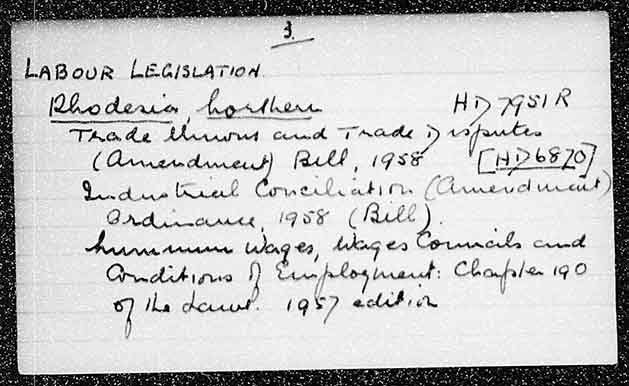 3.
LABOUR LEGISLATION.
Rhodesia, Northern HD7951R
Trade Unions and Trade Disputes
(Amendment) Bill, 1958 [HD6870]
Industrial Conciliation (Amendment)
Ordinance, 1958 (Bill).
Minimum Wages, Wages Councils and
Conditions of Employment: Chapter 190
of the Laws. 1957 edition